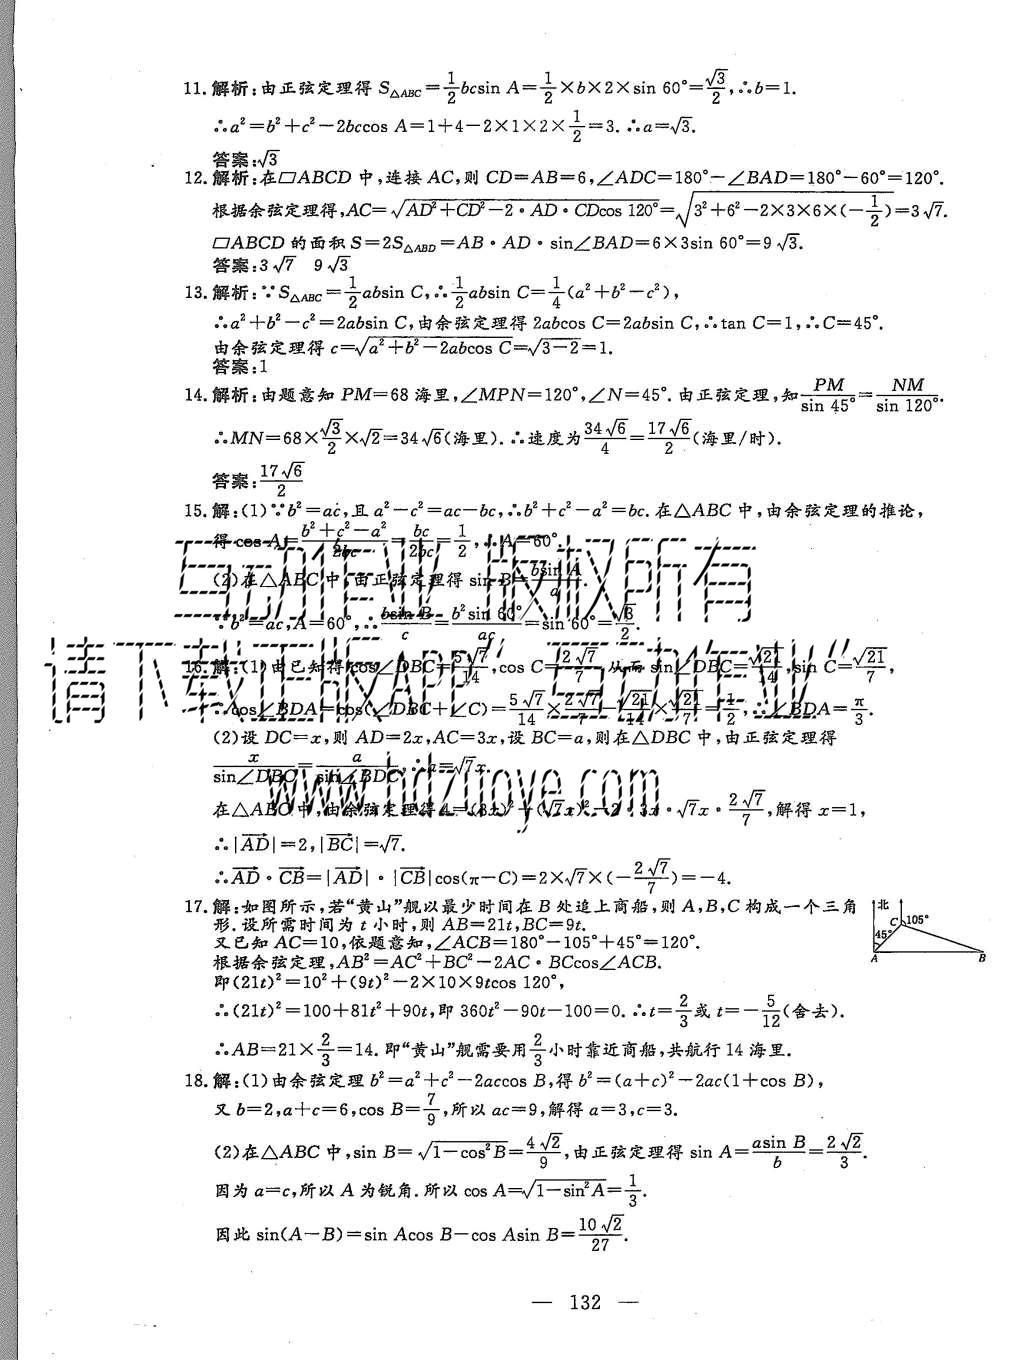 11.解析:由正弦定理得 S△ABC=1/2bcsin A=1/2×b×2×sin 60°=√3/2,∴b=1.
∴a²=b²+c²-2bccos A=1+4-2×1×2×1/2=3.∴a=√3.
答案:√3
12.解析:在▱ABCD 中,连接 AC,则 CD=AB=6,∠ADC=180°-∠BAD=180°-60°=120°.
根据余弦定理得,AC=√(AD²+CD²-2·AD·CDcos 120°)=√(3²+6²-2×3×6×(-1/2))=3√7.
▱ABCD 的面积 S=2S△ABD=AB·AD·sin∠BAD=6×3sin 60°=9√3.
答案:3√7 9√3
13.解析:∵S△ABC=1/2absin C,∴1/2absin C=1/4(a²+b²-c²),
∴a²+b²-c²=2absin C,由余弦定理得 2abcos C=2absin C,∴tan C=1,∴C=45°.
由余弦定理得 c=√(a²+b²-2abcos C)=√(3-2)=1.
答案:1
14.解析:由题意知 PM=68 海里,∠MPN=120°,∠N=45°.由正弦定理,知PM/sin 45°=NM/sin 120°.
∴MN=68×√3/2×√2=34√6(海里).∴速度为34√6/4=17√6/2(海里/时).
答案:17√6/2
15.解:(1)∵b²=ac,且 a²-c²=ac-bc,∴b²+c²-a²=bc.在△ABC 中,由余弦定理的推论,
得 cos A=(b²+c²-a²)/2bc=bc/2bc=1/2,∴A=60°.
(2)在△ABC 中,由正弦定理得 sin B=bsin A/a.
∵b²=ac,A=60°,∴bsin B/c=b²sin 60°/ac=sin 60°=√3/2.
16.解:(1)由已知得 cos∠DBC=5√7/14,cos C=2√7/7,从而 sin∠DBC=√21/14,sin C=√21/7,
∴cos∠BDA=cos(∠DBC+∠C)=5√7/14×2√7/7-√21/14×√21/7=1/2,∴∠BDA=π/3.
(2)设 DC=x,则 AD=2x,AC=3x,设 BC=a,则在△DBC 中,由正弦定理得
x/sin∠DBC=a/sin∠BDC,∴a=√7x.
在△ABC 中,由余弦定理得 4=(3x)²+(√7x)²-2·3x·√7x·2√7/7,解得 x=1,
∴|AD|=2,|BC|=√7.
∴AD·CB=|AD|·|CB|cos(π-C)=2×√7×(-2√7/7)=-4.
17.解:如图所示,若“黄山”舰以最少时间在 B 处追上商船,则 A,B,C 构成一个三角
形.设所需时间为 t 小时,则 AB=21t,BC=9t.
又已知 AC=10,依题意知,∠ACB=180°-105°+45°=120°.
根据余弦定理,AB²=AC²+BC²-2AC·BCcos∠ACB.
即(21t)²=10²+(9t)²-2×10×9tcos 120°,
∴(21t)²=100+81t²+90t,即 360t²-90t-100=0.∴t=2/3或 t=-5/12(舍去).
∴AB=21×2/3=14.即“黄山”舰需要用2/3小时靠近商船,共航行 14 海里.
北
C 105°
45°
A B
18.解:(1)由余弦定理 b²=a²+c²-2accos B,得 b²=(a+c)²-2ac(1+cos B),
又 b=2,a+c=6,cos B=7/9,所以 ac=9,解得 a=3,c=3.
(2)在△ABC 中,sin B=√(1-cos²B)=4√2/9,由正弦定理得 sin A=asin B/b=2√2/3.
因为 a=c,所以 A 为锐角.所以 cos A=√(1-sin²A)=1/3.
因此 sin(A-B)=sin Acos B-cos Asin B=10√2/27.
— 132 —
互动作业 版权所有
请下载正版APP“互动作业”
www.hdzuoye.com